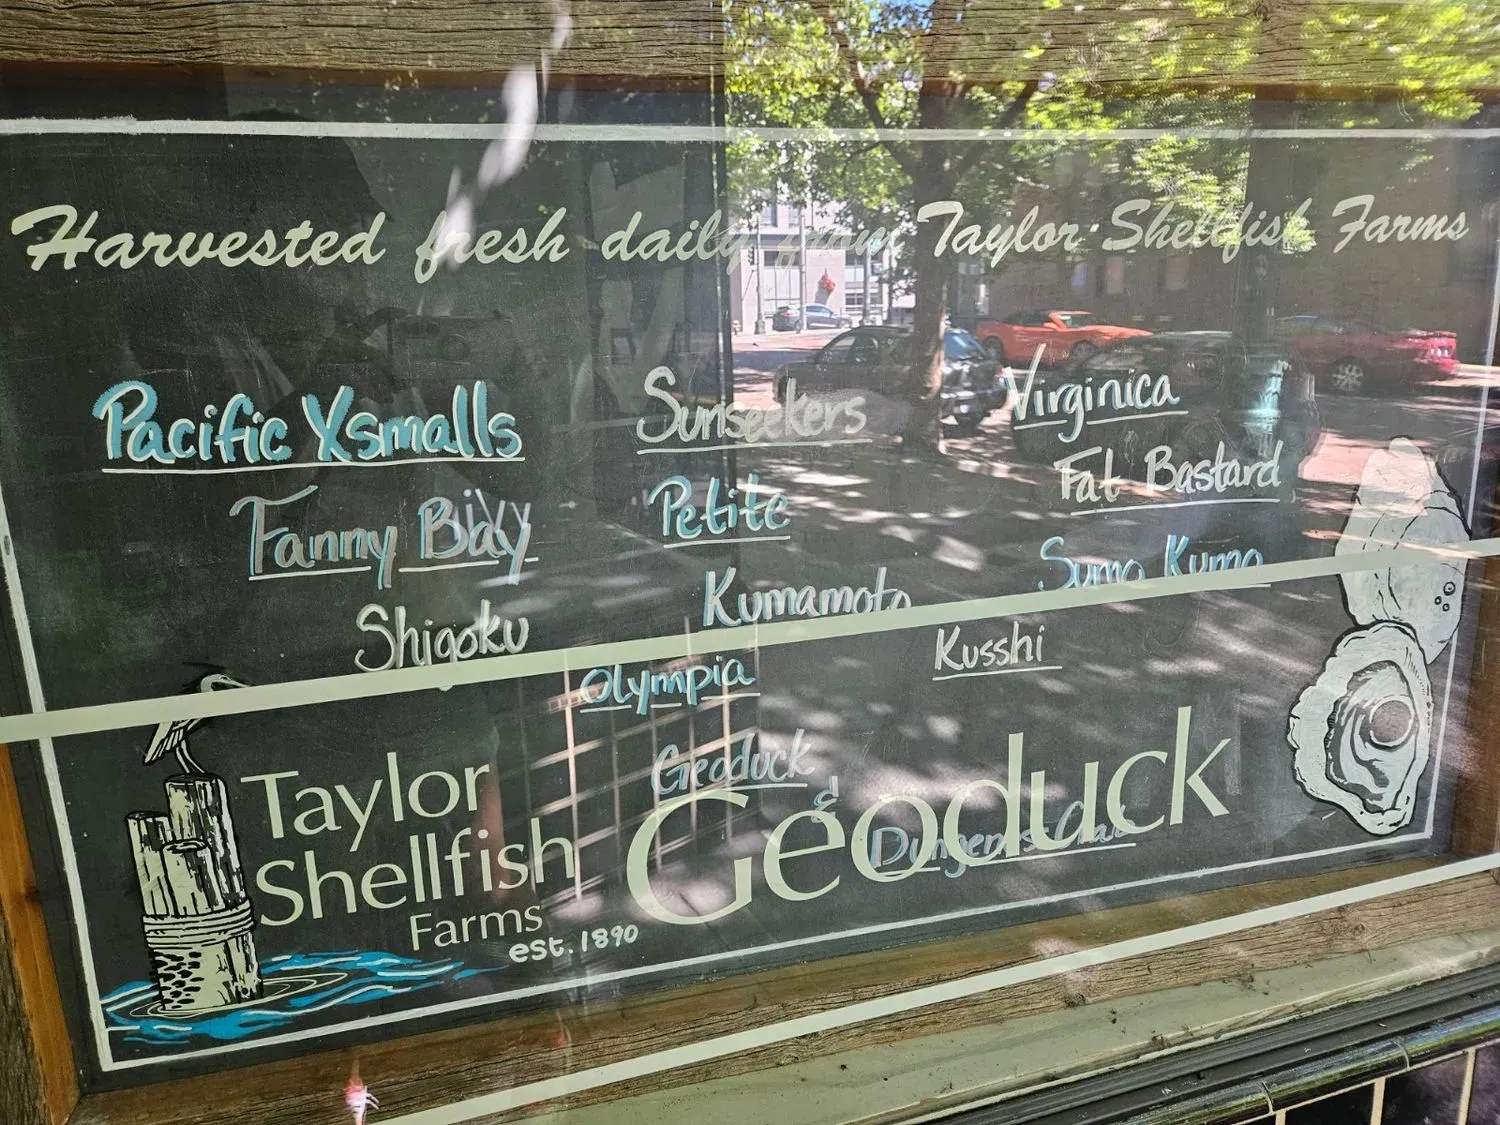 Harvested fresh daily from Taylor Shellfish Farms
Pacific Xsmalls
Sunseekers
Virginica
Fanny Bay
Petite
Fat Bastard
Shigoku
Kumamoto
Sumo Kumo
Olympia
Kusshi
Geoduck
&
Dungeness Crab
Taylor
Shellfish
Farms
est. 1890
Geoduck